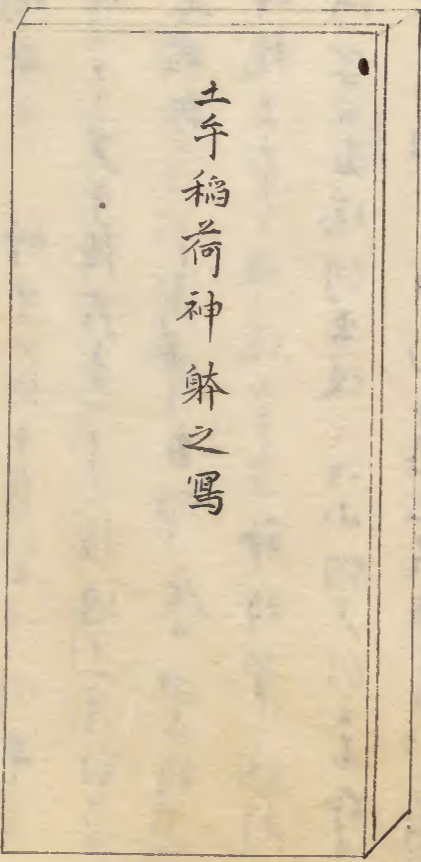 土手稲荷神躰之寫